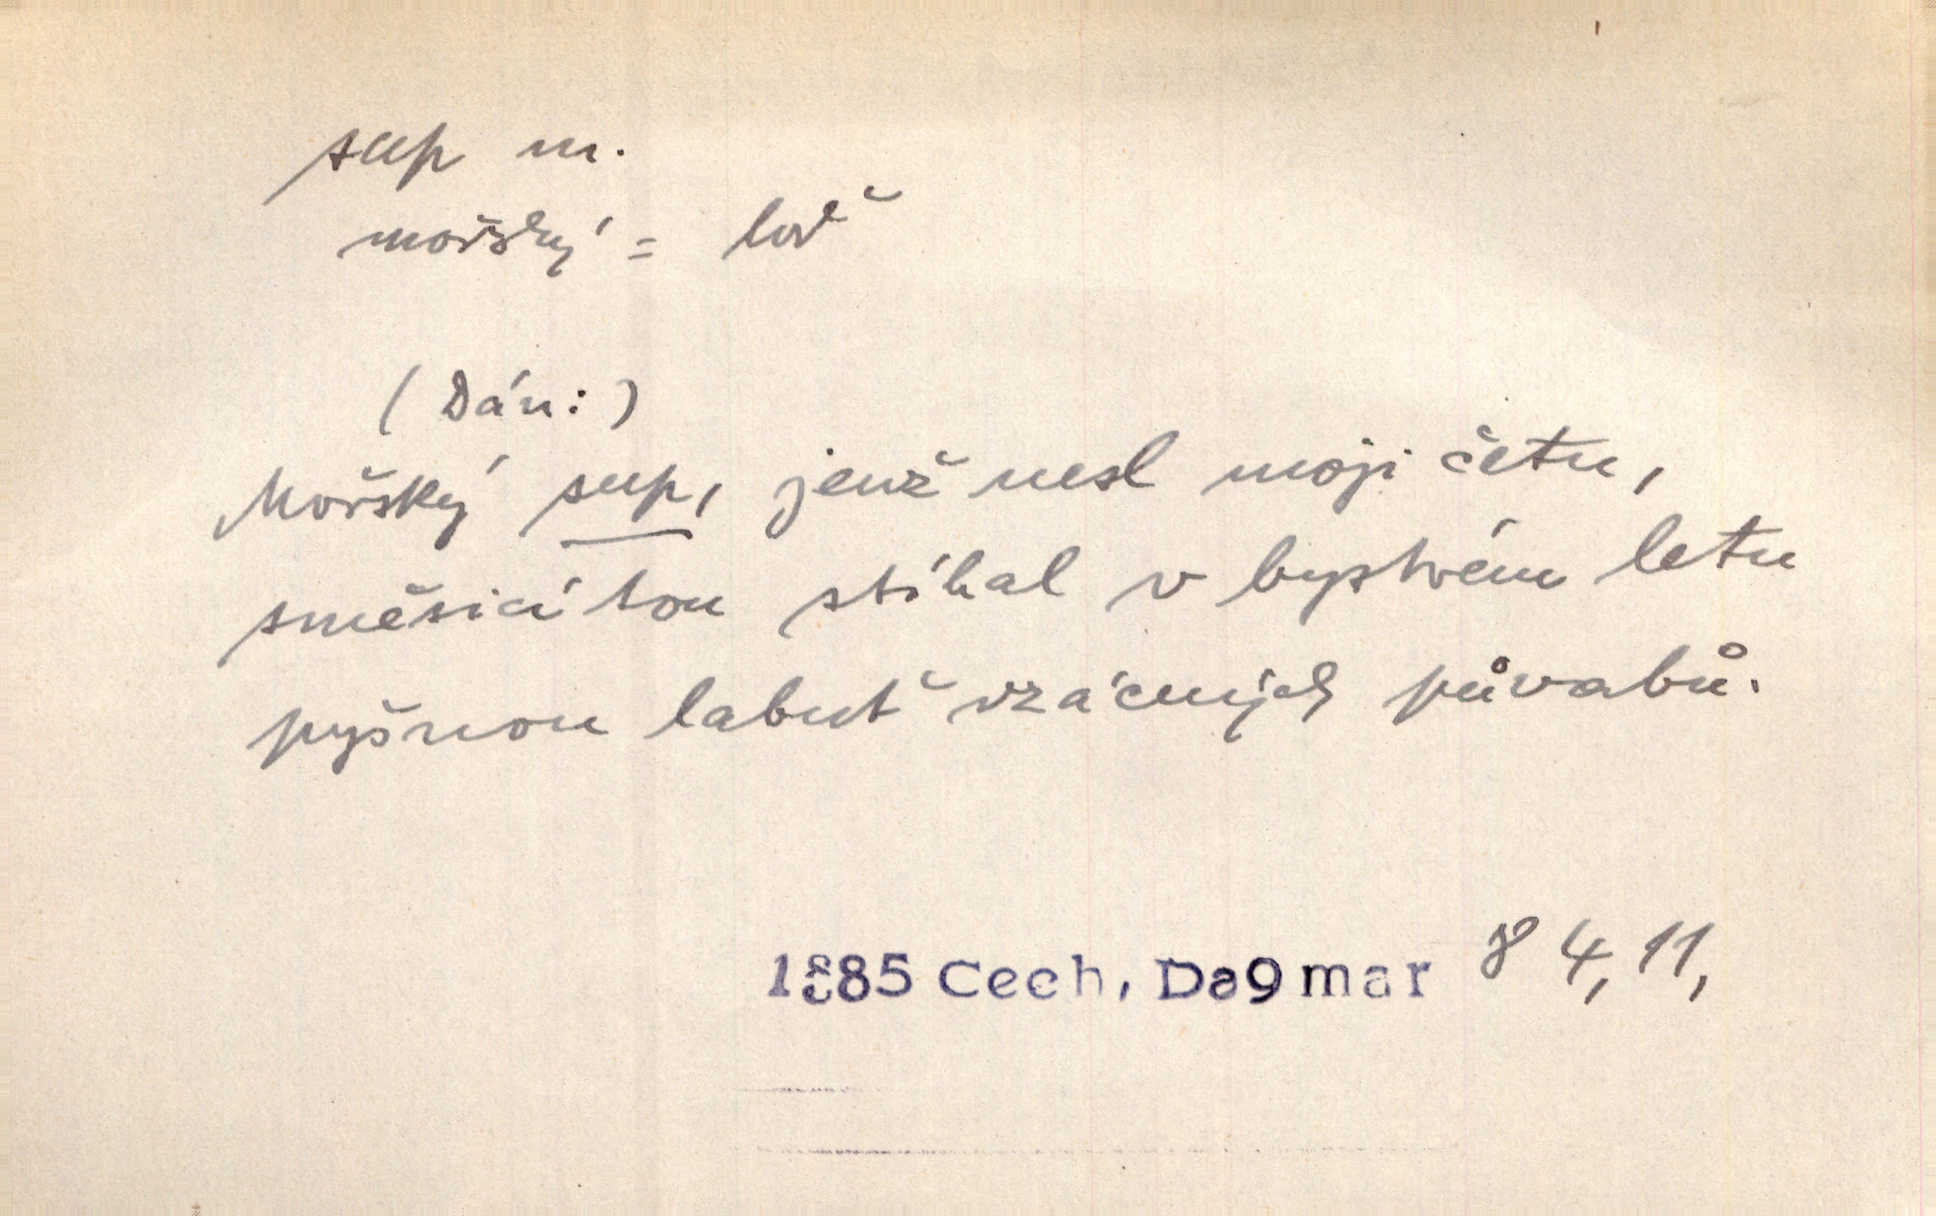 sup m.
mořský = loď
(Dán:)
Mořský sup, jenž nesl moji četu,
směsicí tou stíhal v bystrém letu
pyšnou labuť vzácných půvabů.
1885 Cech, Dagmar 8 4, 11,